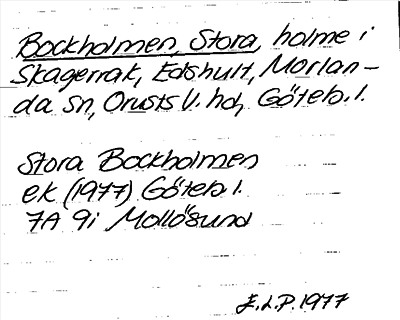 Bockholmen, Stora, holme i
Skagerrak, Edshult, Morlan-
da sn, Orusts V. hd, Göteb. l.
Stora Bockholmen
ek (1977) Göteb l.
7A 9i Mollösund
E.L.P. 1977